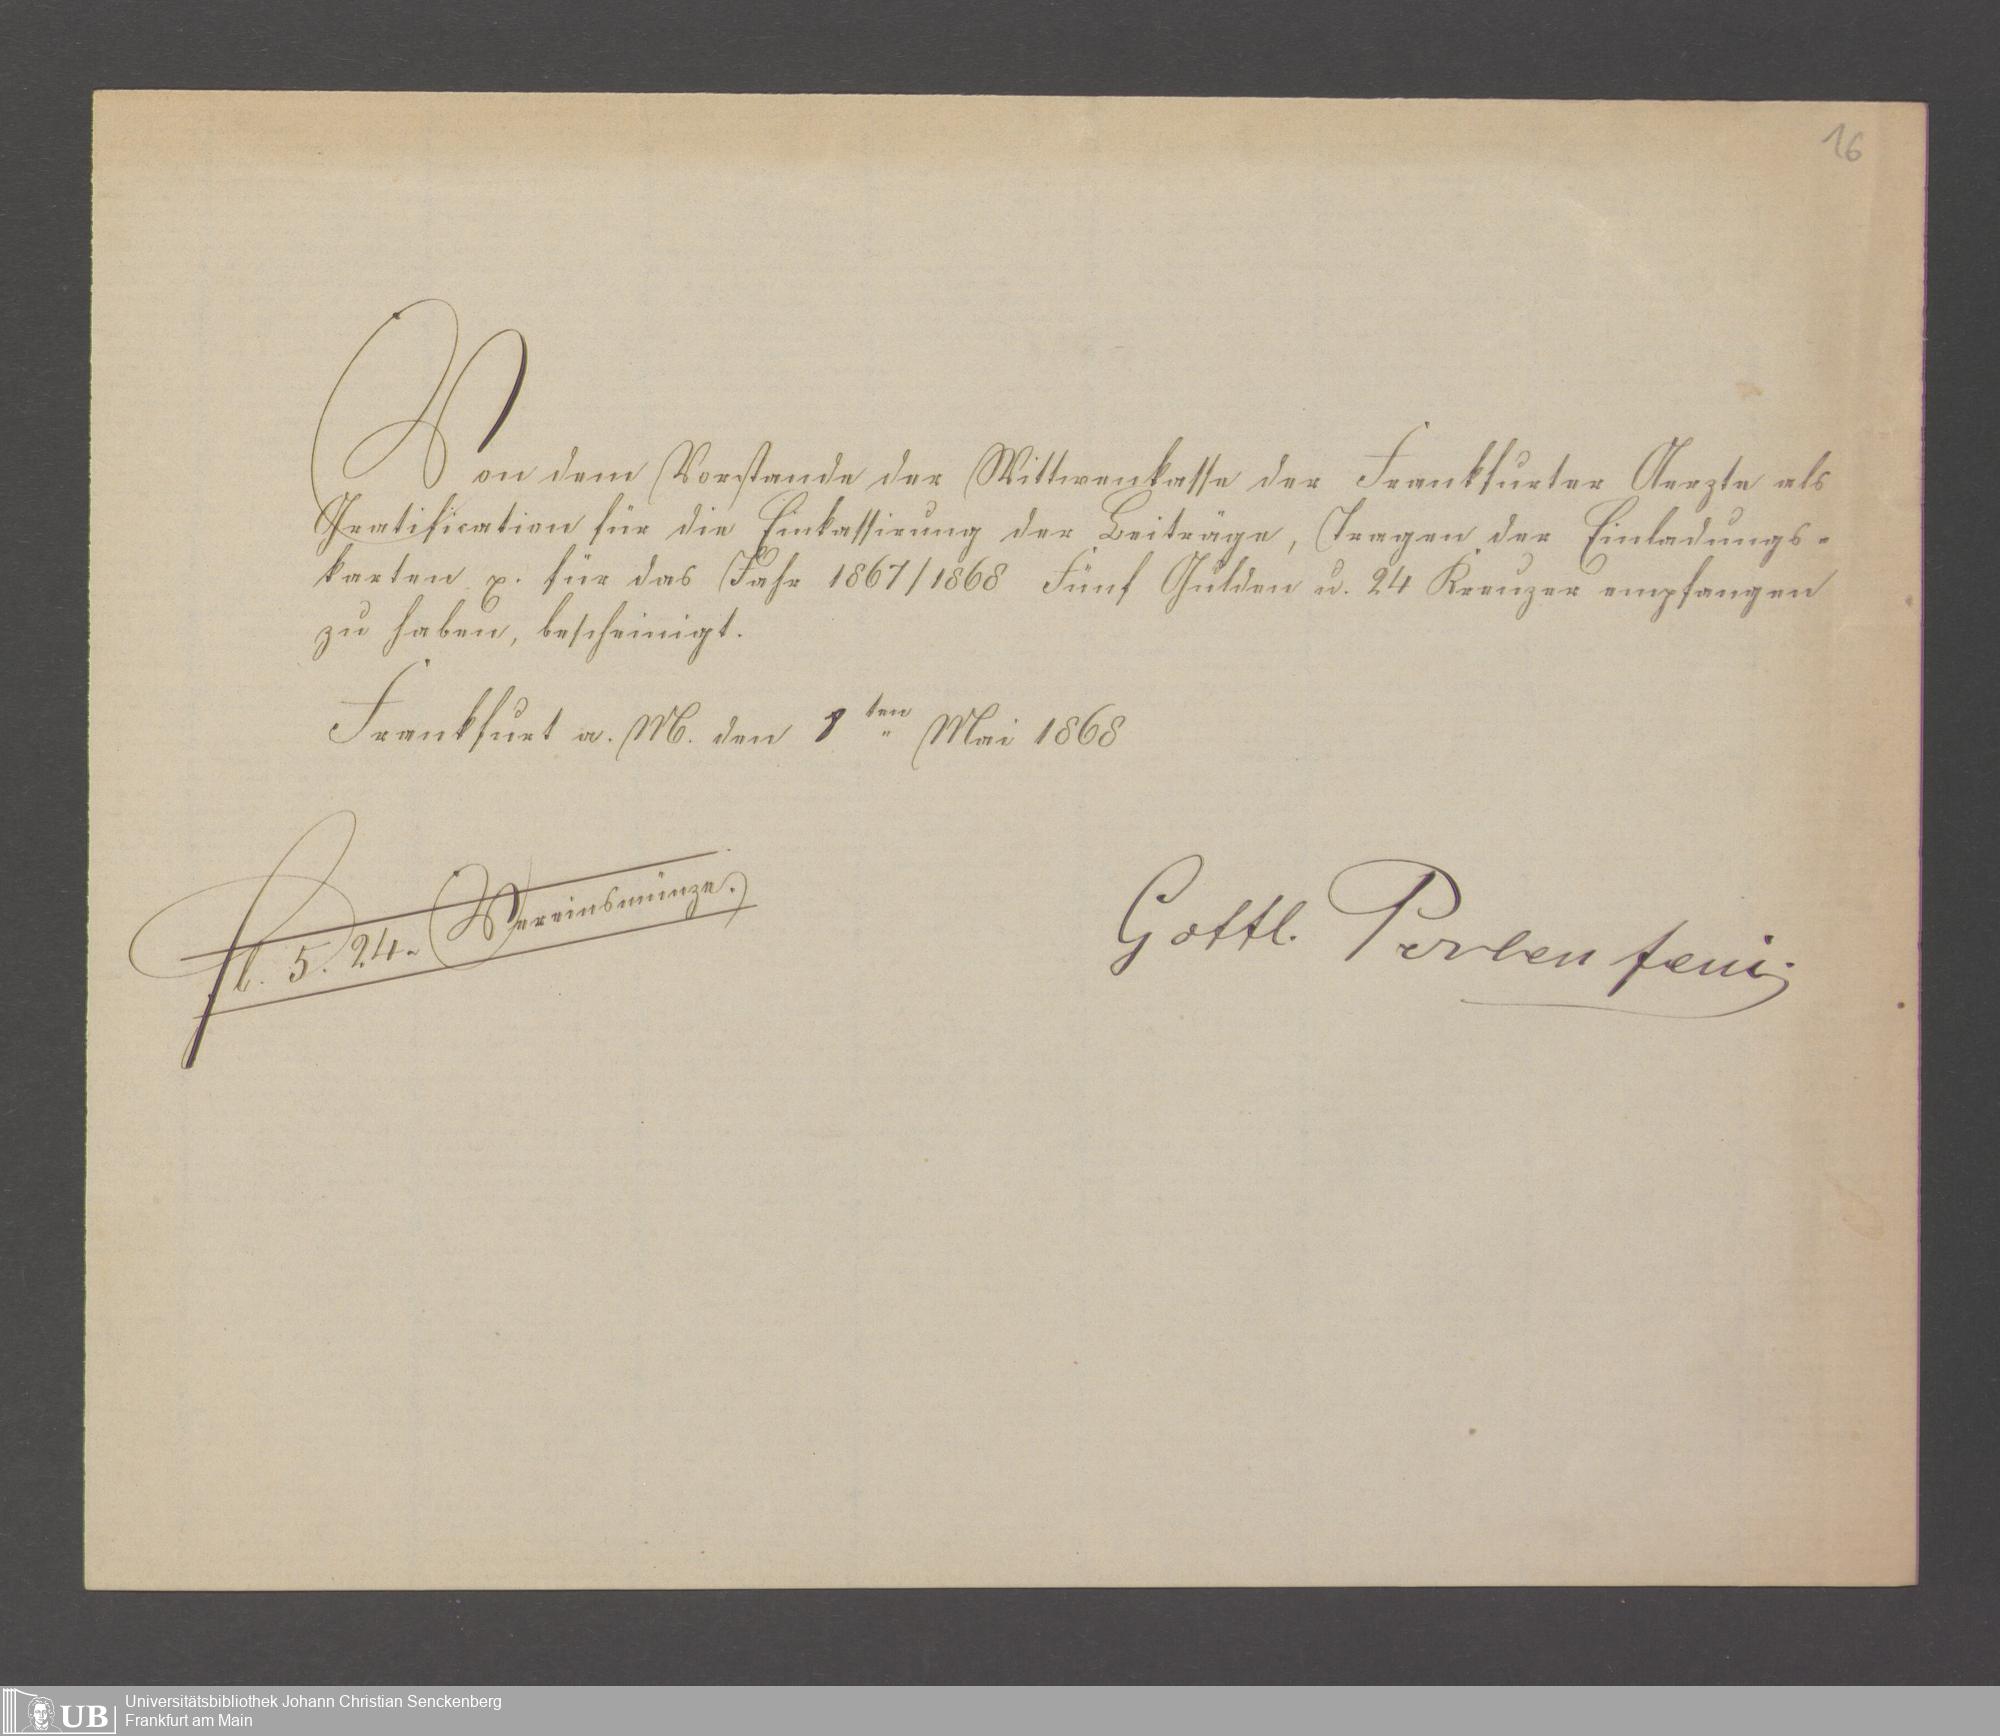 16
Von dem Vorstande der Wittwenkasse der Frankfurter Aerzte als
Gratification für die Einkassirung der Beiträge, Tragen der Einladungs-
karten p. für das Jahr 1867/1868 Fünf Gulden u. 24 Kreuzer empfangen
zu haben, bescheinigt.
Frankfurt a. M. den ten Mai 1868
fl. 5. 24. Vereinsmünze.
Gottl.
UB Universitätsbibliothek Johann Christian Senckenberg
Frankfurt am Main